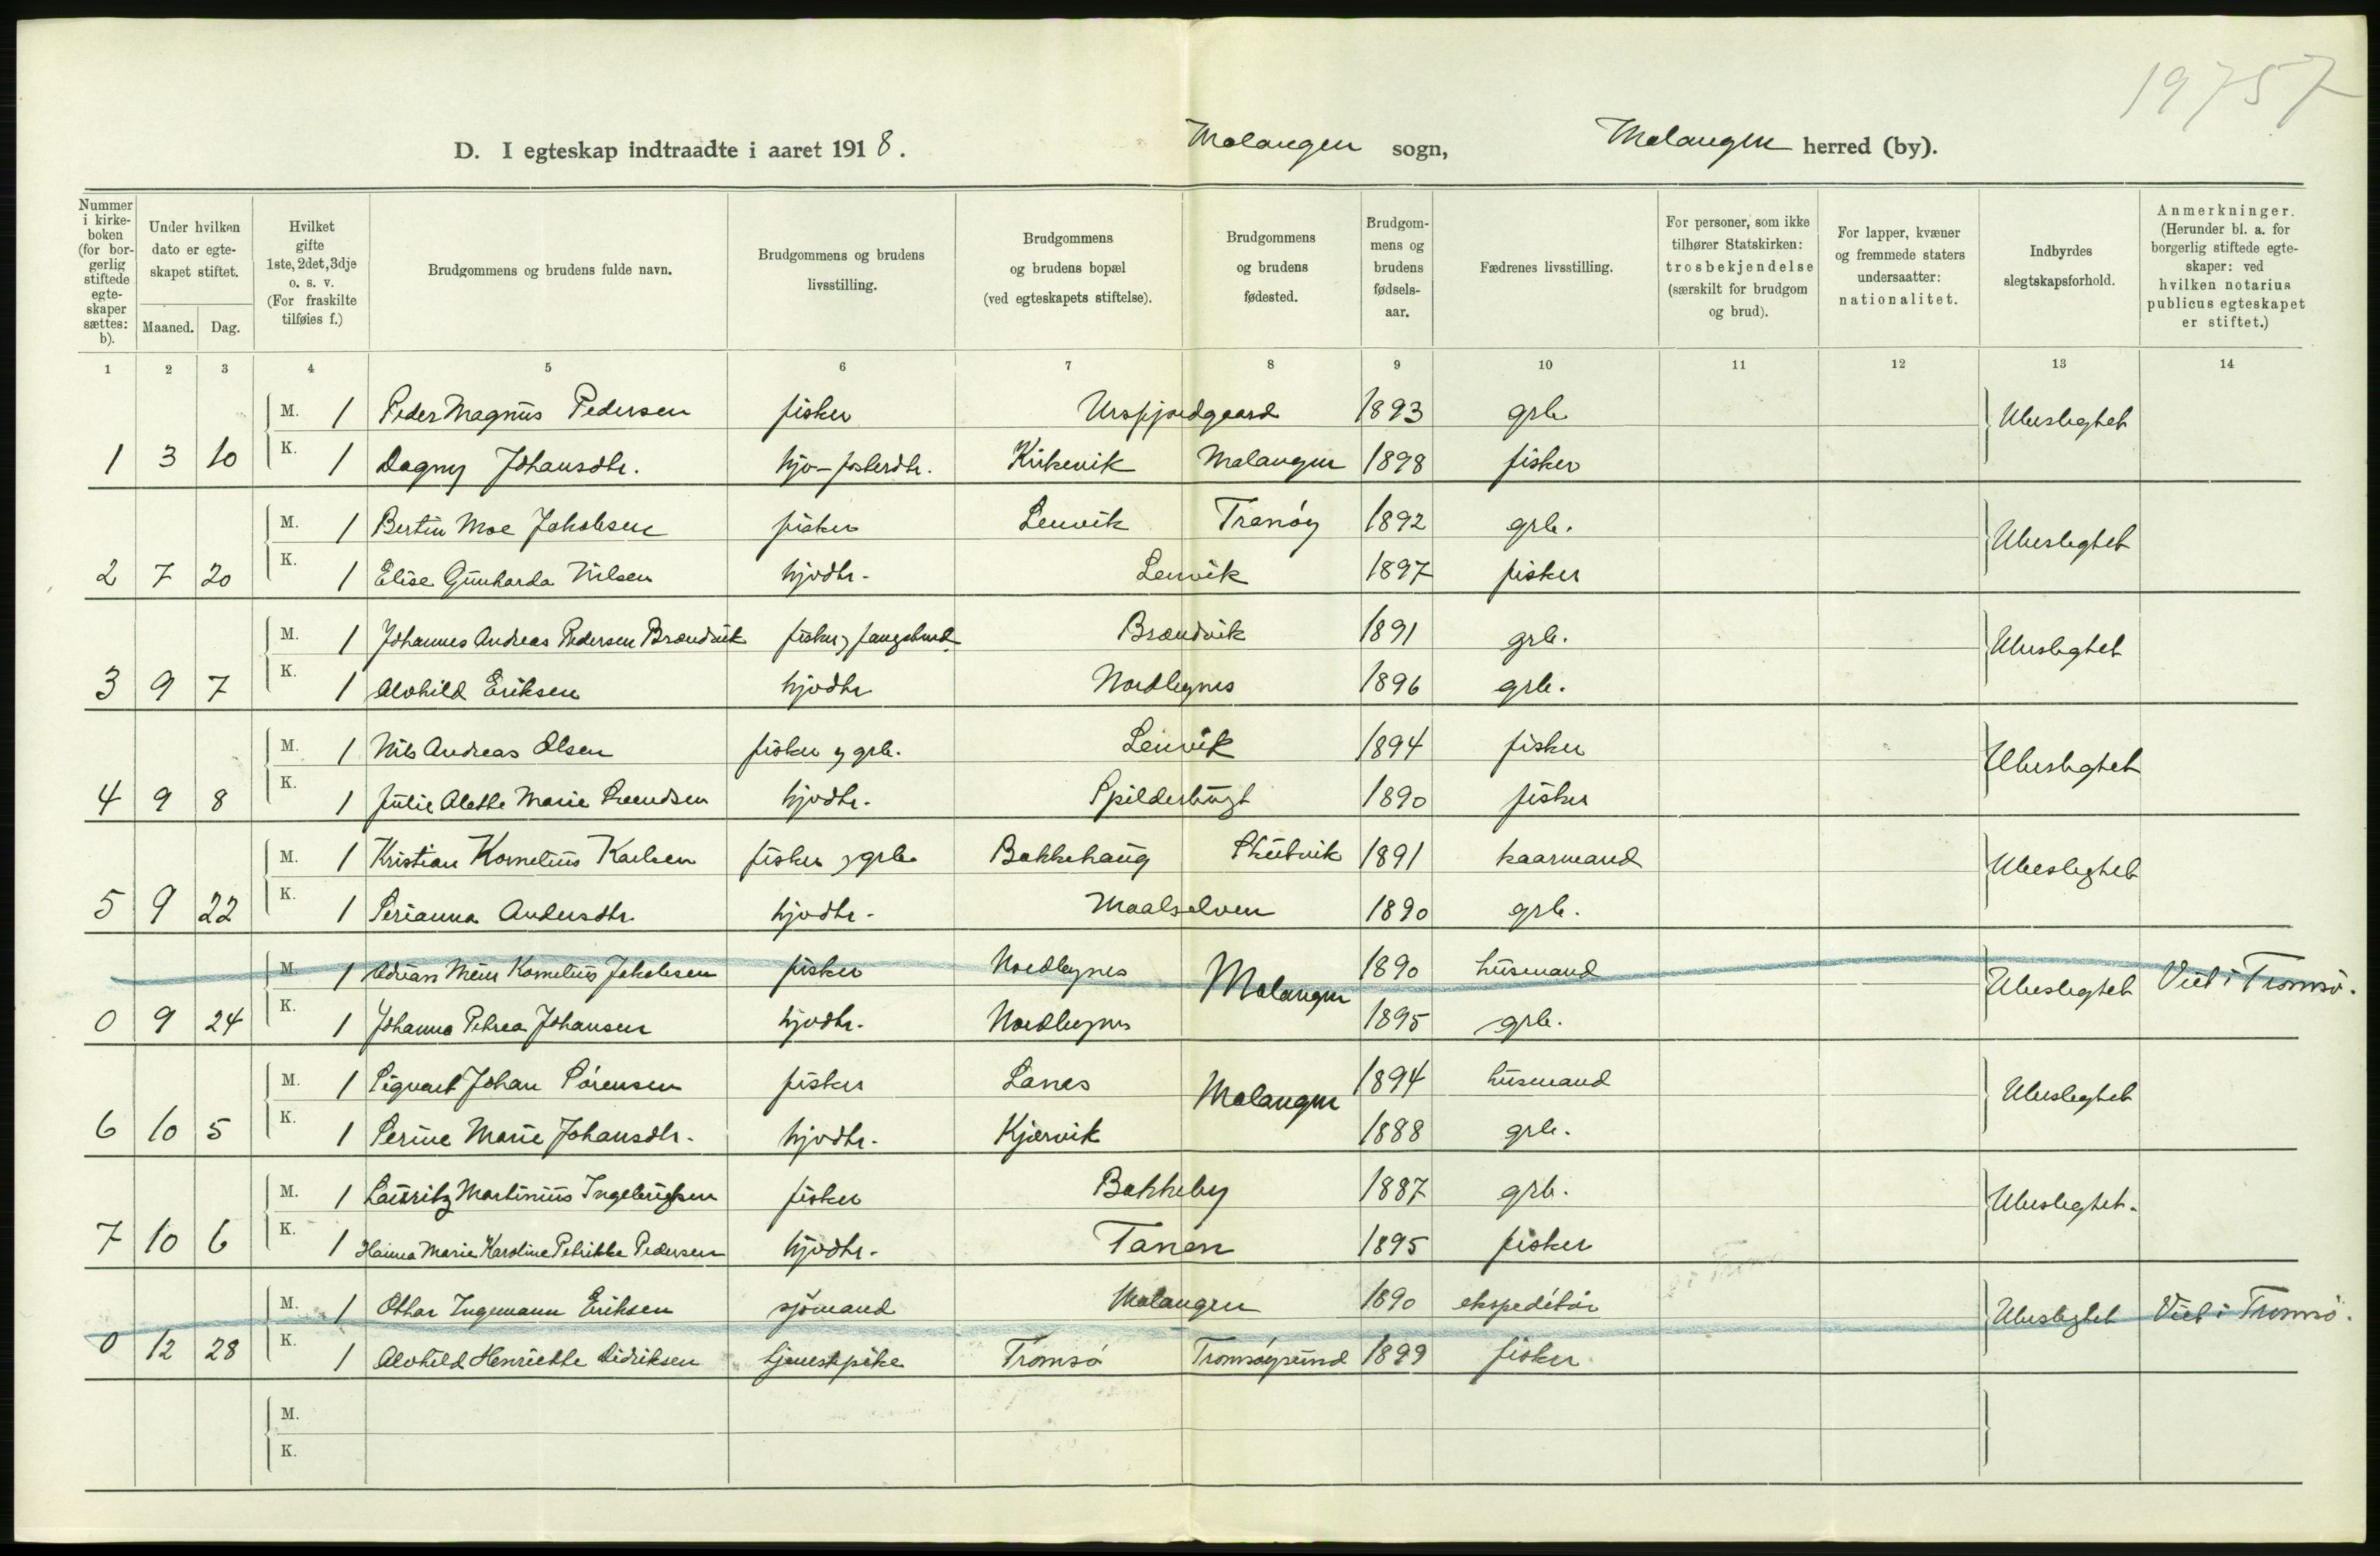 19757
D. I egteskap indtraadte i aaret 1918. Malangen sogn, Malangen herred (by).
Nummer i kirkeboken (for borgerlig stiftede egteskaper sættes: b).
Under hvilken dato er egteskapet stiftet.
Maaned. Dag.
Hvilket gifte 1ste, 2det, 3dje o. s. v. (For fraskilte tilføies f.)
Brudgommens og brudens fulde navn.
Brudgommens og brudens livsstilling.
Brudgommens og brudens bopæl (ved egteskapets stiftelse).
Brudgommens og brudens fødested.
Brudgommens og brudens fødselsaar.
Fædrenes livsstilling.
For personer, som ikke tilhører Statskirken: trosbekjendelse (særskilt for brudgom og brud).
For lapper, kvæner og fremmede staters undersaatter: nationalitet.
Indbyrdes slegtskapsforhold.
Anmerkninger. (Herunder bl. a. for borgerlig stiftede egteskaper: ved hvilken notarius publicus egteskapet er stiftet.)
1 2 3 4 5 6 7 8 9 10 11 12 13 14
M. 1 Peder Magnus Pedersen fisker Ursfjordgaard 1893 grb. Ubeslegtet
1 3 10 K. 1 Dagny Johansdtr. hjv-fosterdtr. Kirkevik Malangen 1898 fisker
M. 1 Bertin Moe Jakobsen fisker Lenvik Tranøy 1892 grb. Ubeslegtet
2 7 20 K. 1 Elise Gunharda Nilsen hjvdtr. Lenvik 1897 fisker
M. 1 Johannes Andreas Pedersen Brændvik fisker og fangstmd. Brændvik 1891 grb. Ubeslegtet
3 9 7 K. 1 Alvhild Eriksen hjvdtr Nordbynes 1896 grb.
M. 1 Nils Andreas Olsen fisker og grb. Lenvik 1894 fisker Ubeslegtet
4 9 8 K. 1 Julie Alette Marie hjvdtr. Spilderbugt 1890 fisker
M. 1 Kristian Kornelius Karlsen fisker og grb. Bakkehaug Skutvik 1891 kaarmand Ubeslegtet
5 9 22 K. 1 Perianna Andersdtr. hjvdtr. Maalselven 1890 grb.
M. 1 Adrian Kornelius Jakobsen fisker Nordbynes Malangen 1890 husmand Ubeslegtet Viet i Tromsø.
0 9 24 K. 1 Johanna Petrea Johansen hjvdtr. Nordbynes 1895 grb.
M. 1 Sigvart Johan Sørensen fisker Lanes Malangen 1894 husmand Ubeslegtet
6 10 5 K. 1 Perine Marie Johansdtr. hjvdtr. Kjærvik 1888 grb.
M. 1 Lauritz Martinius Ingebrigtsen fisker Bakkeby 1887 grb. Ubeslegtet.
7 10 6 K. 1 Hanna Marie Karoline Petrikke Pedersen hjvdtr. Tanen 1895 fisker
M. 1 Othar Ingemann Eriksen sjømand Malangen 1890 ekspeditør Ubeslegtet Viet i Tromsø.
0 12 28 K. 1 Alvhild Henriette Didriksen tjenestepike Tromsø Tromsøysund 1899 fisker
M.
K.